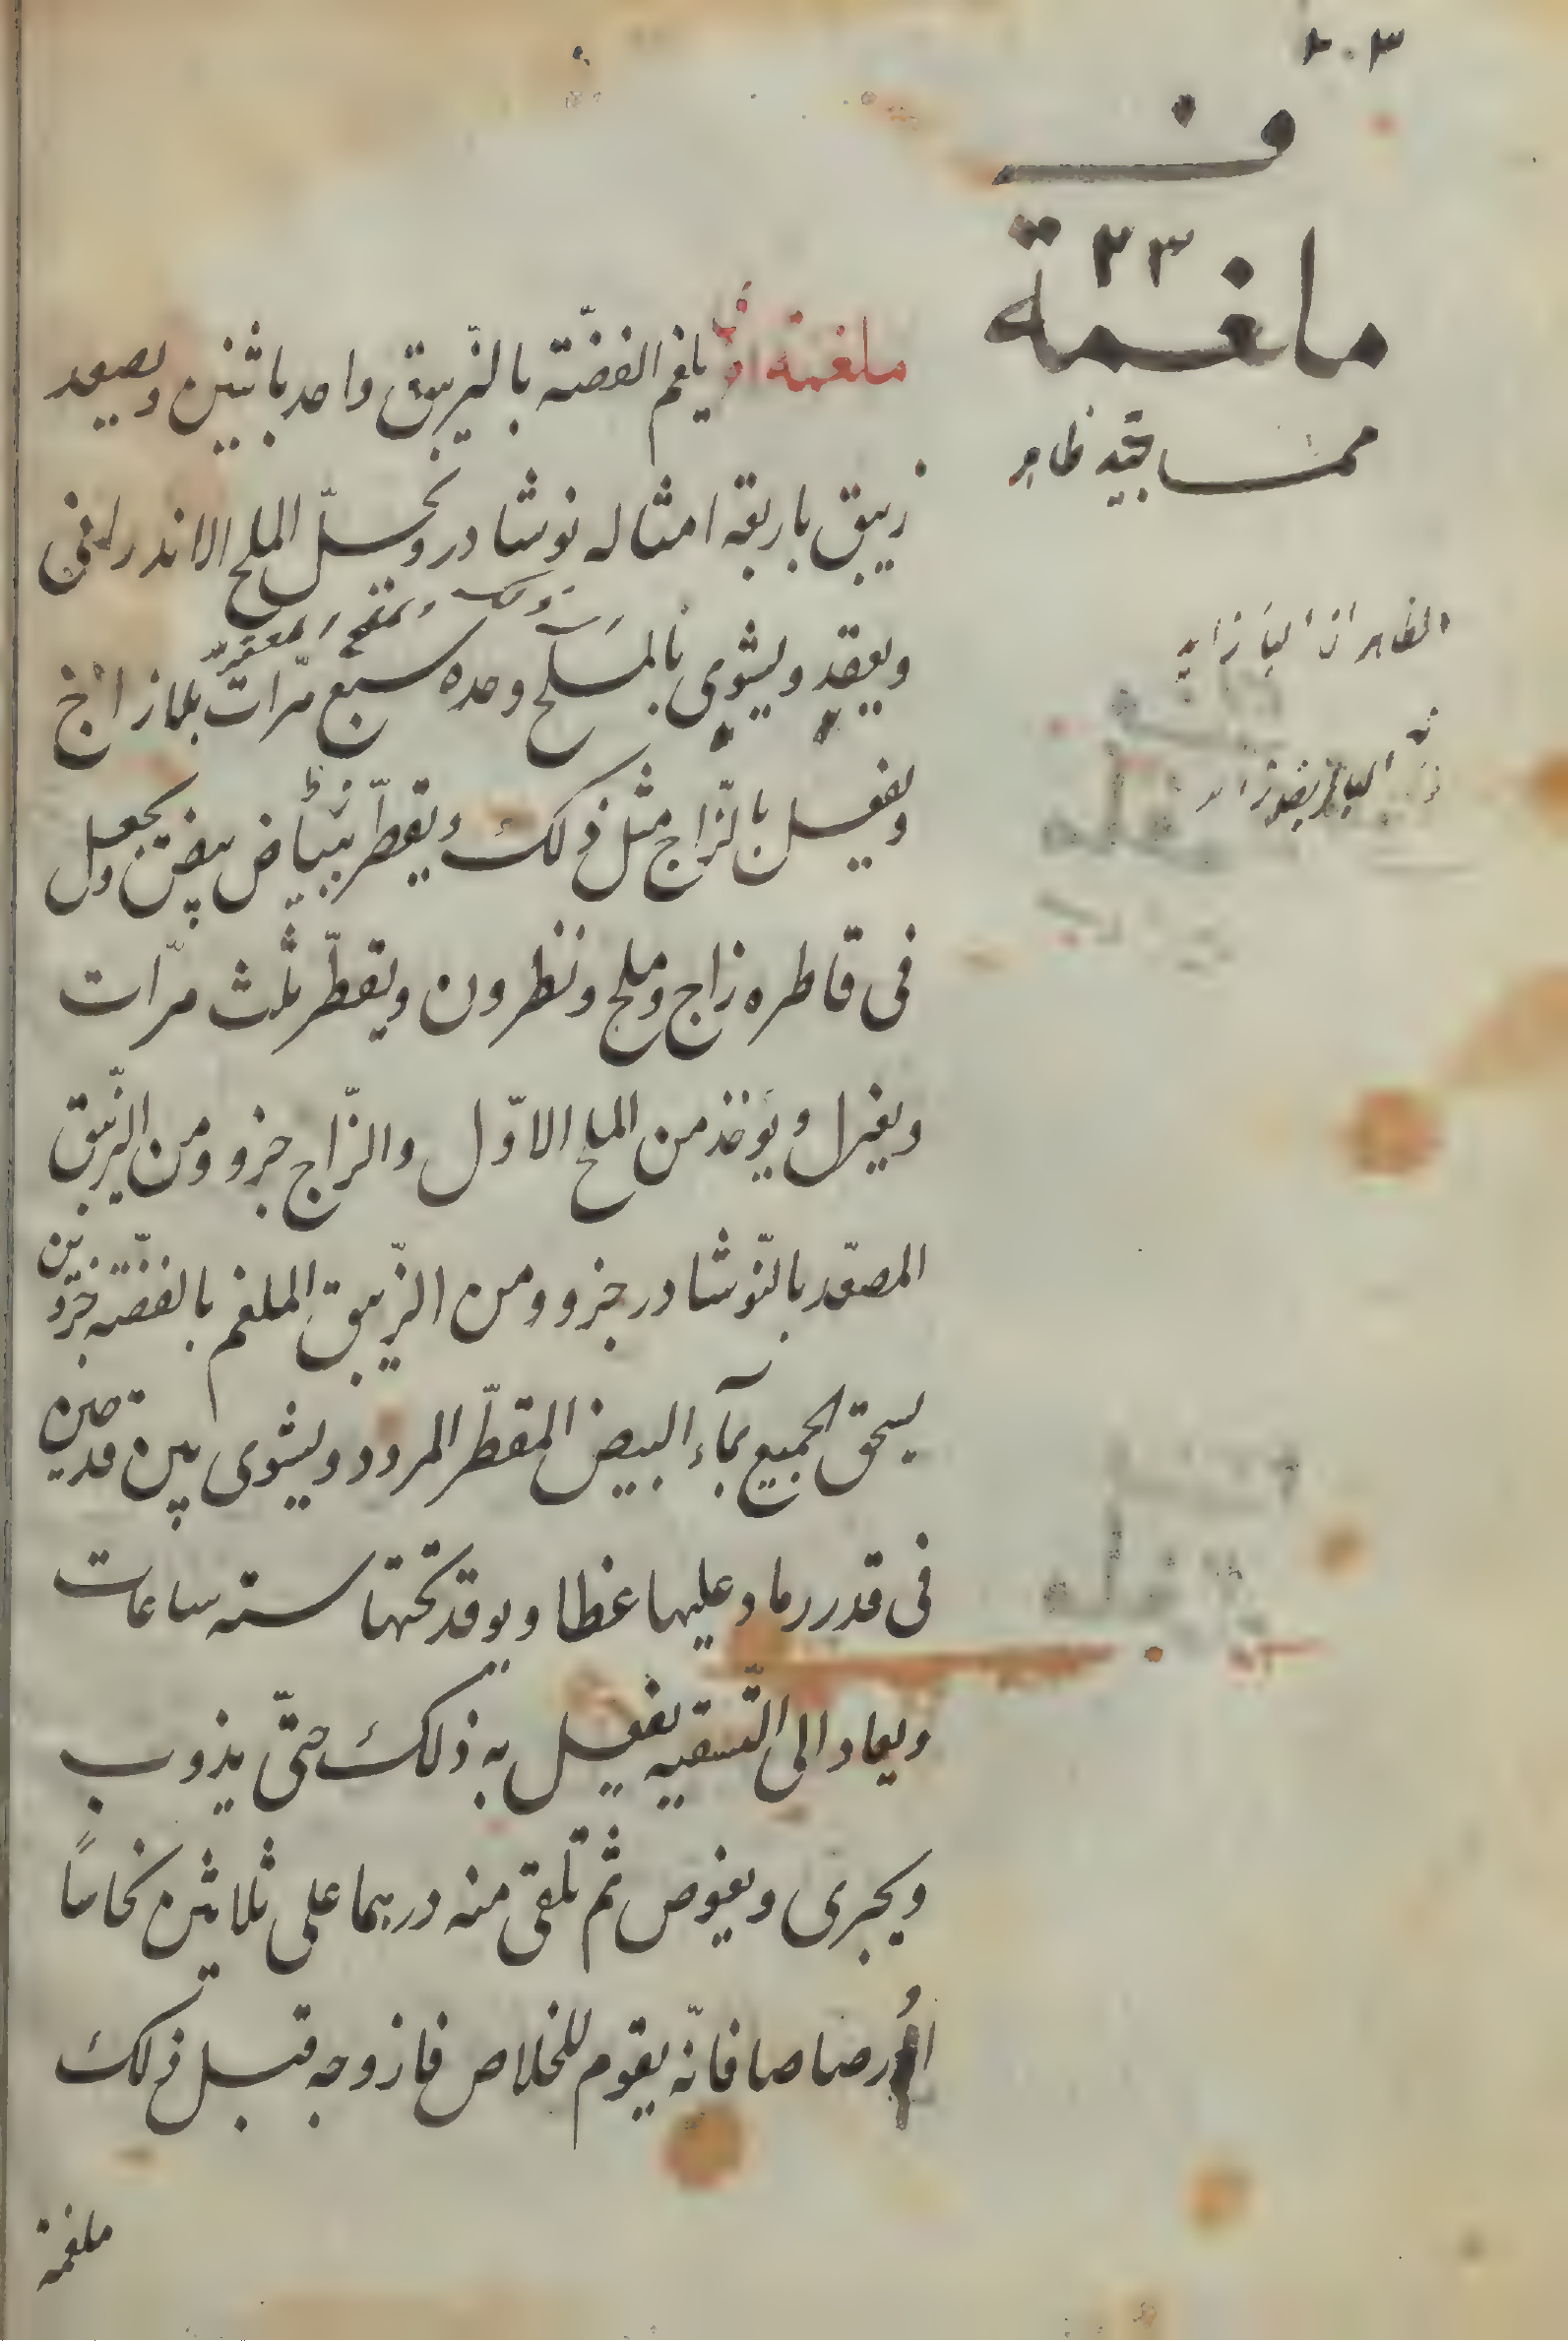 ٢٠٣
ف
ملغمة ٢٣
مما بقيد ظاهر
ملغمة يلغم الفضّة بالزّيبق واحد باثنين ويصعد
زيبق باربعة امثاله نوشادر ويحلّ الملح الاندرانى
ويعقد ويشوى بالملح وحده سبع مرّات بلا زاج
ويفعل بالزّاج مثل ذلك ويقطّر بياض بيض ويجعل
فى قاطره زاج وملح ونطرون ويقطّر ثلث مرّات
ويغزل ويؤخذ من الملح الاوّل والزّاج جزو ومن الزّيبق
المصعّد بالنّوشادر جزو ومن الزّيبق الملغم بالفضّة جزوين
يسحق الجميع بمآء البيض المقطّر المردود ويشوى بين قدحين
فى قدر رماد عليها غطا ويوقد تحتها ستة ساعات
ويعاد الى التّسقيه يفعل به ذلك حتّى يذوب
ويجرى ويغوص ثم تلقى منه درهما على ثلاثين نحاسًا
او رصاصا فانّه يقوم للخلاص فازوجه قبل ذلك
ملغمة
الظاهر ان الباء زائد